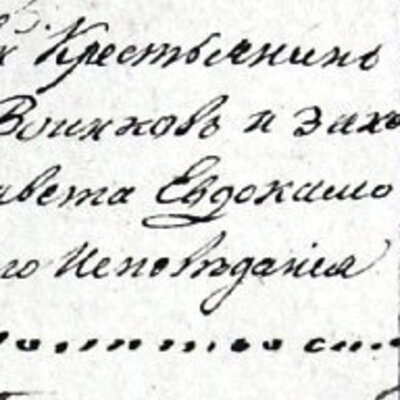 Крестьянинъ
Воинковъ и зако
авета Евдокимо
го Исповѣданія